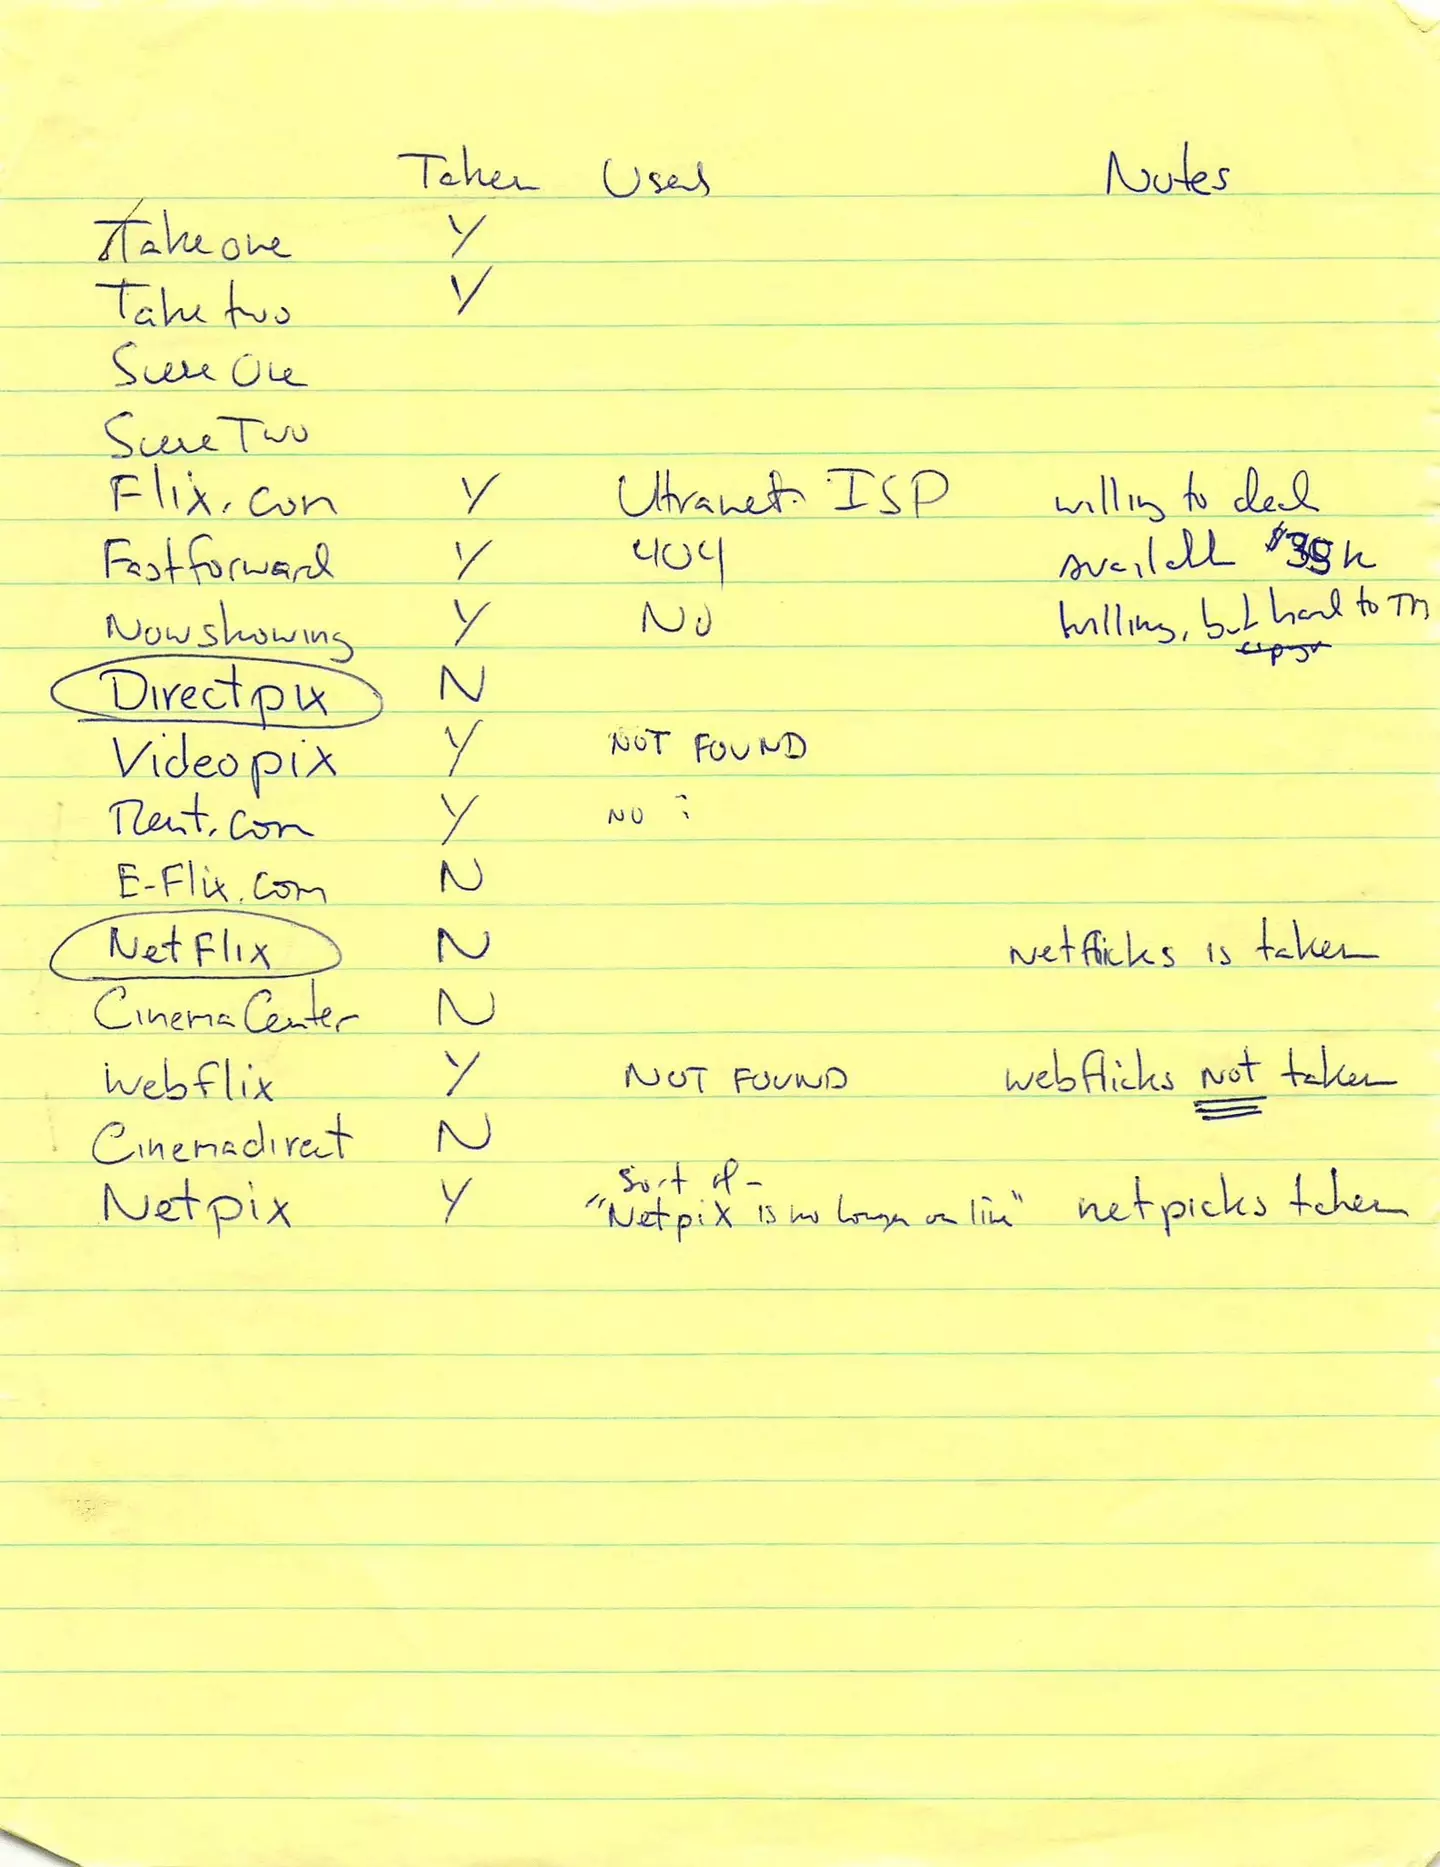 Taken Used Notes
Takeone Y
Taketwo Y
Scene One
Scene Two
Flix.com Y Ultranet ISP willing to deal
Fastforward Y 404 available $35k
Nowshowing Y No willing, but hard to TM
Directpix N
Videopix Y NOT FOUND
Rent.com Y NO
E-Flix.com N
NetFlix N netflicks is taken
CinemaCenter N
webflix Y NOT FOUND webflicks NOT taken
Cinemadirect N
Sort of -
Netpix Y "Netpix is no longer on line" netpicks taken